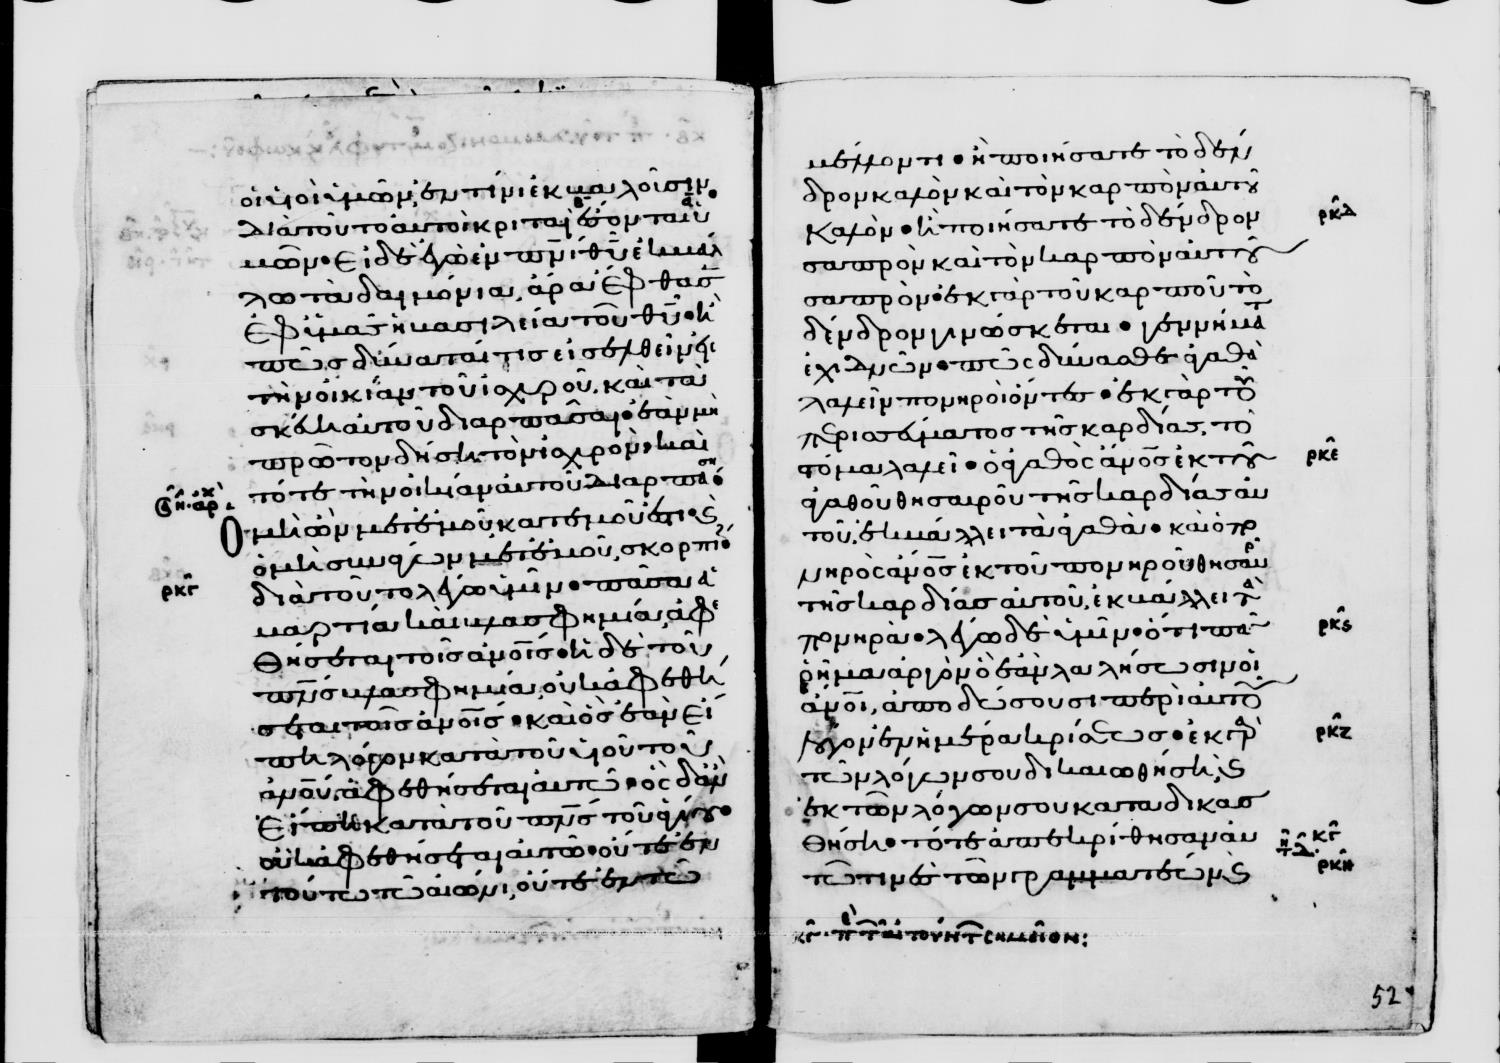 οἱ υἱοὶ ὑμῶν, ἐν τίνι ἐκβάλλουσιν·
διὰ τοῦτο αὐτοὶ κριταὶ ἔσονται ὑ
μῶν· Εἰ δὲ ἐγὼ ἐν πνι θυ ἐκβάλ
λω τὰ δαιμόνια, ἄρα ἔφθασεν
ἐφ ὑμᾶς ἡ βασιλεία τοῦ θυ· ἢ
πῶς δύναταί τις εἰσελθεῖν εἰς
τὴν οἰκίαν τοῦ ἰσχυροῦ, καὶ τὰ
σκεύη αὐτοῦ διαρπάσαι· ἐὰν μὴ
πρῶτον δήσῃ τὸν ἰσχυρόν, καὶ
τότε τὴν οἰκίαν αὐτοῦ διαρπάση·
Ὁ μὴ ὢν μετ ἐμοῦ κατ εμοῦ ἐστι· καὶ
ὁ μὴ συνάγων μετ ἐμοῦ, σκορπίζει·
ρκγ διὰ τοῦτο λέγω ὑμῖν· πᾶσα ἁ
μαρτία καὶ βλασφημία, ἀφε
θήσεται τοῖς ἀνοις· ἡ δὲ τοῦ
πνς βλασφημία, οὐκ ἀφεθή
σεται τοῖς ἀνοις· καὶ ὃς ἐὰν εἴ
πῃ λόγον κατὰ τοῦ υἱοῦ τοῦ
ἀνου, ἀφεθήσεται αὐτῶ· ὃς δ ἂν
εἴπῃ κατὰ τοῦ πνς τοῦ ἁγίου·
οὐκ ἀφεθήσεται αὐτῶ· οὔτε ἐν
τούτω τῶ αἰῶνι, οὔτε ἐν τῶ
μέλλοντι· ἢ ποιήσατε τὸ δέν
δρον καλὸν καὶ τὸν καρπὸν αὐτοῦ
καλόν· ἢ ποιήσατε τὸ δένδρον ρκδ
σαπρὸν καὶ τὸν καρπὸν αὐτοῦ
σαπρόν· ἐκ γὰρ τοῦ καρποῦ τὸ
δένδρον γινώσκεται· γεννήματα
ἐχιδνῶν· πῶς δύνασθε ἀγαθὰ
λαλεῖν πονηροὶ ὄντες· ἐκ γὰρ τοῦ
περισσεύματος τῆς καρδίας, τὸ
στόμα λαλεῖ· ὁ ἀγαθὸς ἄνος ἐκ τοῦ ρκε
ἀγαθοῦ θησαυροῦ τῆς καρδίας αὐ
τοῦ, ἐκβάλλει τὰ ἀγαθά· καὶ ὁ πο
νηρὸς ἄνος ἐκ τοῦ πονηροῦ θησαυρ
τῆς καρδίας αὐτοῦ, ἐκβάλλει τὰ
πονηρά· λέγω δὲ ὑμῖν· ὅτι πᾶν ρκς
ῥῆμα ἀργὸν ὃ ἐὰν λαλήσωσιν οἱ
ἄνοι, ἀποδώσουσι περὶ αὐτοῦ
λόγον ἐν ἡμέρα κρίσεως· ἐκ γὰρ ρκζ
τῶν λόγων σου δικαιωθήσῃ, καὶ
ἐκ τῶν λόγων σου καταδικασ
θήσῃ· τότε ἀπεκρίθησαν αὐ κγ
τῶ τινὲς τῶν γραμματέων, καὶ ρκη
κγ· π τῶν αἰτούντ σημεῖον:
52